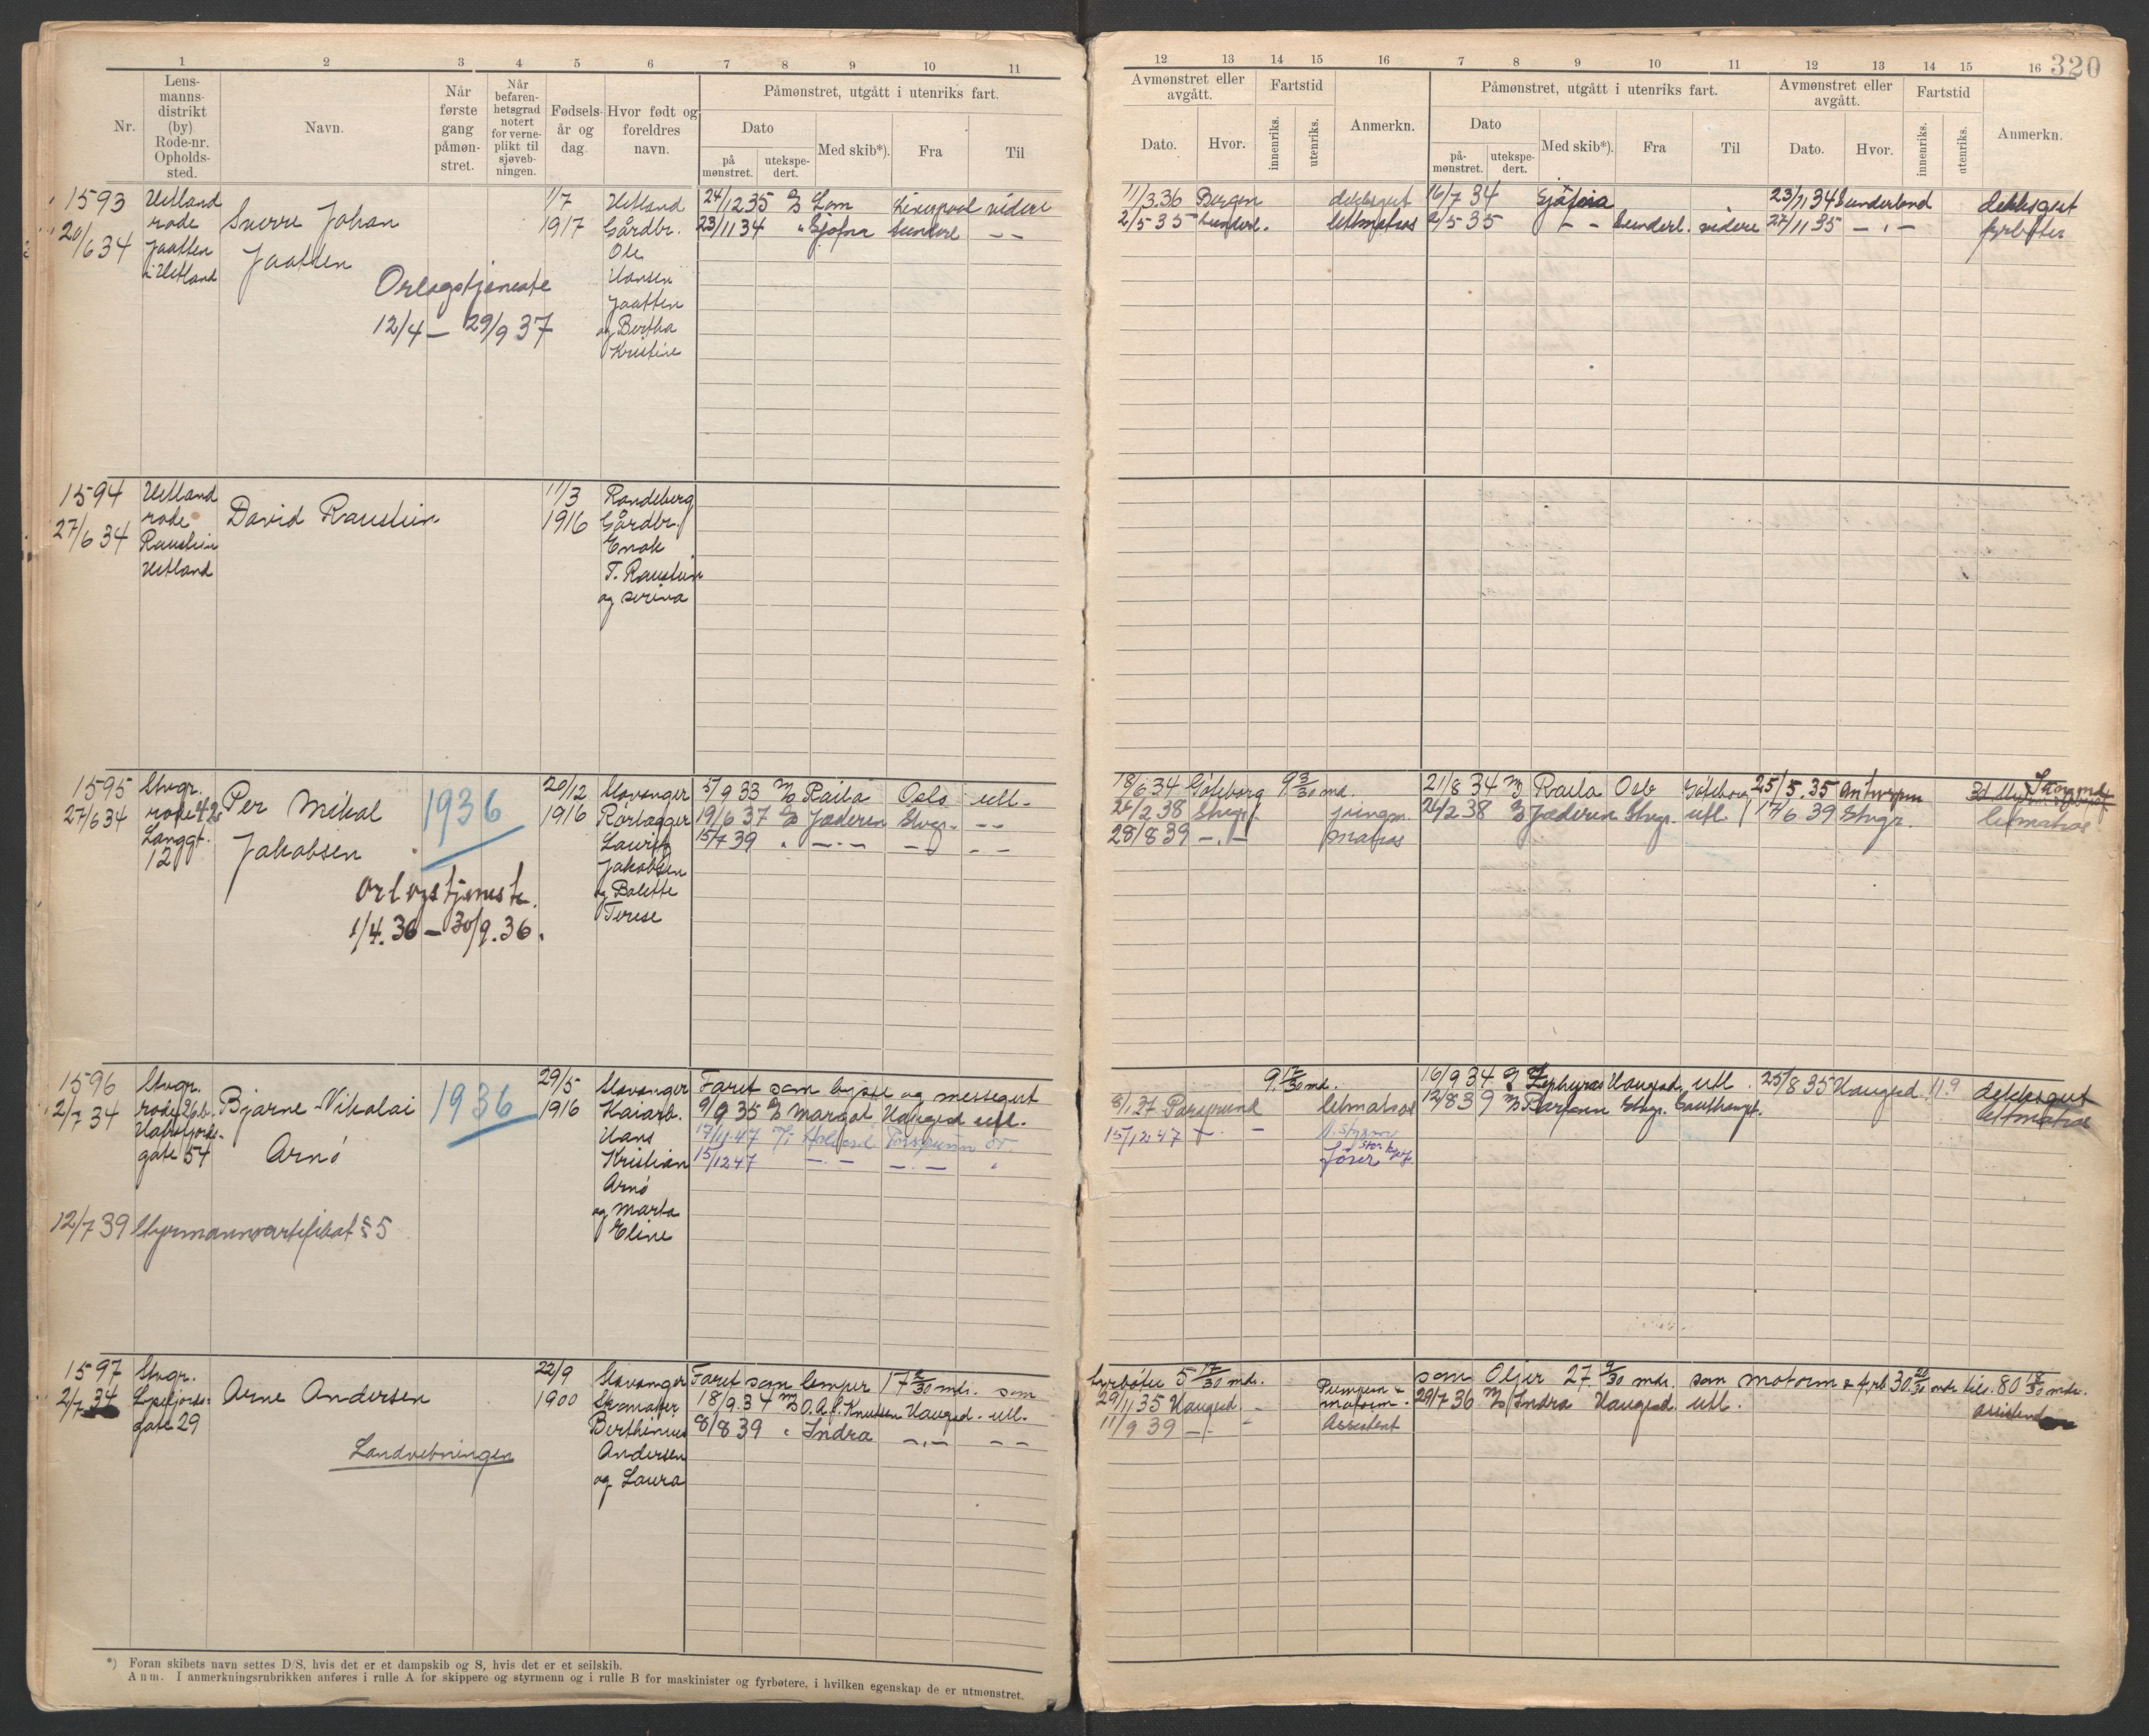 320
1 2 3 4 5 6 7 8 9 10 11
Nr.
Lens-
manns-
distrikt
(by)
Rode-nr.
Opholds-
sted.
Navn.
Når
første
gang
påmøn-
stret.
Når
befaren-
hetsgrad
notert
for verne-
plikt til
sjøveb-
ningen.
Fødsels-
år og
dag.
Hvor født og
foreldres
navn.
Påmønstret, utgått i utenriks fart.
Dato
på
mønstret.
utekspe-
dert.
Med skib*).
Fra
Til
12 13 14 15 16 7 8 9 10 11 12 13 14 15 16
Avmønstret eller
avgått.
Dato.
Hvor.
Fartstid
innenriks.
utenriks.
Anmerkn.
Påmønstret, utgått i utenriks fart.
Dato
på-
mønstret.
utekspe-
dert.
Med skib*).
Fra
Til
Avmønstret eller
avgått.
Dato.
Hvor.
Fartstid
innenriks.
utenriks.
Anmerkn.
1593
20/6 34
Hetland
rode
Jaatten
i Hetland
Sverre Johan
Jaatten
Orlogstjeneste
12/4 – 29/9 37
1/7
1917
Hetland
Gårdbr.
Ole
Hansen
Jaatten
og Bertha
Kristine
24/12 35 Lom Liverpool videre
23/11 34 " Gjøfna Sunderl – –
11/3 36 Bergen dekksgut 16/7 34 23/11 34 Sunderland dekksgut
2/5 35 Sunderl. lettmatros 2/5 35 – – Sunderl. videre 27/11 35 – " – fyrbøter
1594
27/6 34
Hetland
rode
Raustein
Hetland
David Raustein
11/3
1916
Randeberg
Gårdbr.
Enok
T. Raustein
og Serina
1595
27/6 34
Stvgr.
rode 42
Langgt.
12
Per Mikal
Jakobsen
1936
Orlogstjeneste.
1/4.36 – 30/9.36.
20/12
1916
Stavanger
Rørlegger
Lauritz
Jakobsen
og Bolette
Terese
5/9 33 Raila Oslo utl.
19/6 37 Jæderen Stvgr. – –
15/7 39 " – " – – – – –
18/6 34 Göteborg 9 3/30 md. 21/8 34 Raila Oslo Göteborg 25/5.35 Antwerpen
24/2 38 Stvgr. jungm. 24/2 38 Jæderen Stvgr. utl. 17/6 39 Stvgr. lettmatros
28/8 39 – " – matros
1596
2/7 34
Stvgr.
rode 26b.
Hafrsfjords-
gate 54
Bjarne Nikolai
Arnø
1936
12/7 39 Styrmannsertifikat § 5
29/5
1916
Stavanger
Kaiarb.
Hans
Kristian
Arnø
og Marta
Eline
Faret som bysse og messegut
9/9 35 Margot Haugesd utl.
17/11.47 Porsgrunn
15/12 47 – " – – " – "
9 md. 16/9 34 Zephyros Haugesd. utl. 25/8 35 Haugesd 11.9 dekksgut
Porsgrund lettmatros 12/8 39 Stvgr. lettmatros
15/12 47 – " –
fører
1597
2/7 34
Stvgr.
gate 29
Arne Andersen
Landvebningen
22/9
1900
Stavanger
Skomaker
Berthinius
Andersen
og Laura
Faret som lemper 17 /30 mdr. som
18/9.34 O.A. Knudsen Haugesd. utl.
8/8 39 " Indra – " – – –
fyrbøter 5 17/30 mdr. som Oljer 27 9/30 mdr. som motorm. 30 mdr. tils. 80 mdr.
29/11 35 Haugesd motorm. 29/7 36 Indra Haugesd utl. assistent
11/9 39 – " – Assistent
*) Foran skibets navn settes D/S, hvis det er et dampskib og S, hvis det er et seilskib.
Anm. I anmerkningsrubrikken anføres i rulle A for skippere og styrmenn og i rulle B for maskinister og fyrbøtere, i hvilken egenskap de er utmønstret.